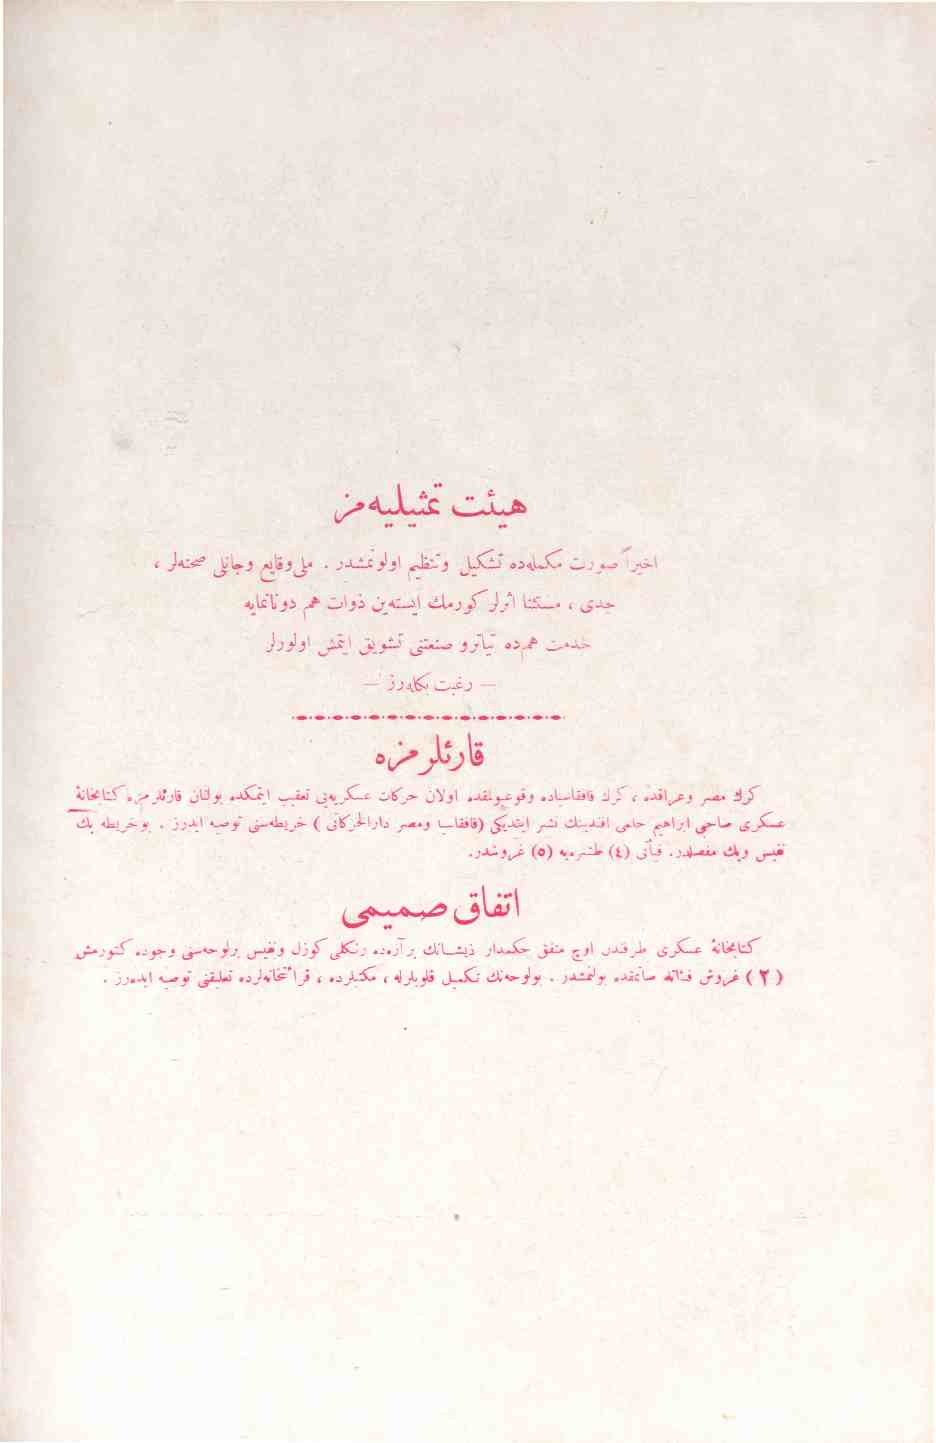 هیئت تمثیلیه‌مز
اخیراً صورت مکمله‌ده تشکیل وتنظیم اولونمشدر . ملی‌وقایع وجانلی صحنه‌لر ،
جدی ، مستثنا اثرلر کورمك ایسته‌ین ذوات هم دونانمایه
خدمت هم‌ده تیاترو صنعتنی تشویق ایتمش اولورلر
— رغبت بکله‌رز —
قارئلرمزه
کرك مصر وعراقده ، کرك قافقاسیاده وقوعبولمقده اولان حرکات عسکریه‌یی تعقیب ایتمکده بولنان قارئلرمزه کتابخانهٔ
عسکری صاحبی ابراهیم حلمی افندینك نشر ایتدیکی (قافقاسیا ومصر دارالحرکاتی ) خریطه‌سنی توصیه ایدرز . بوخریطه پك
نفیس وپك مفصلدر. فیأتی (٤) طشره‌یه (٥) غروشدر.
اتفاق صمیمی
کتابخانهٔ عسکری طرفندن اوچ متفق حکمدار ذیشانك بر آره‌ده رنکلی کوزل ونفیس برلوحه‌سنی وجوده کتورمش
(٢) غروش فیئاتله صاتمقده بولنمشدر . بولوحه‌نك تکمیل قلوبلرله ، مکتبلرده ، قرائتخانه‌لرده تعلیقنی توصیه ایده‌رز .